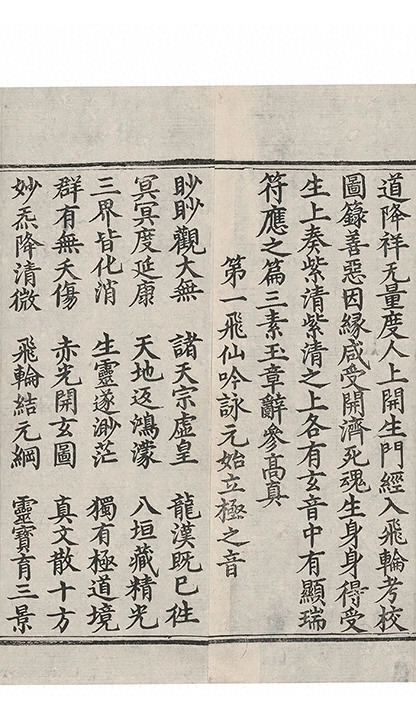 道降祥无量度人上開生門經入飛輪考校
圖籙善惡因緣咸受開濟死魂生身身得受
生上奏紫清紫清之上各有玄音中有顯瑞
符應之篇三素玉章辭參髙真
第一飛仙吟詠元始立極之音
眇眇觀大無　諸天宗虛皇　龍漢既已徃
冥冥度延康　天地返鴻濛　八垣藏精光
三界皆化消　生靈遂渺茫　獨有極道境
群有無夭傷　赤光開玄圖　真文散十方
妙炁降清微　飛輪結元綱　靈寶育三景